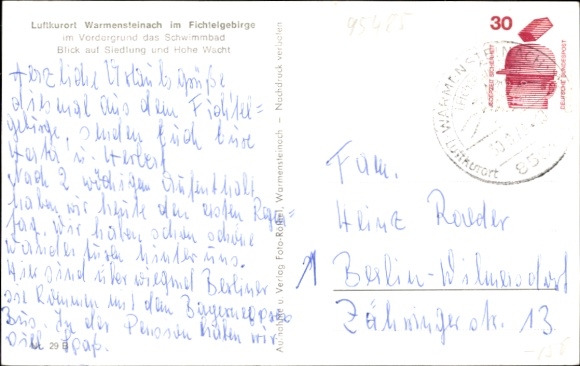 Luftkurort Warmensteinach im Fichtelgebirge
im Vordergrund das Schwimmbad
Blick auf Siedlung und Hohe Wacht
Herzliche Urlaubsgrüße
diesmal aus dem Fichtel=
gebirge, senden Euch Eure
Herta u. Herbert
Nach 2 wöchigen Aufenthalt
haben wir heute den ersten Regen=
tag. Wir haben schon schöne
Wandertouren hinter uns.
Hier sind überwiegend Berliner
sie kommen mit dem
Bus. In der Pension haben wir
viel Spaß.
29
Autnahme u. Verlag Foto-Warmensteinach – Nachdruck verboten
95485
30
JEDERZEIT SICHERHEIT
DEUTSCHE BUNDESPOST
WARMENSTEINACH
Luftkurort
Fam.
Heinz Raeder
1 Berlin-Wilmersdorf
Zähringerstr. 13